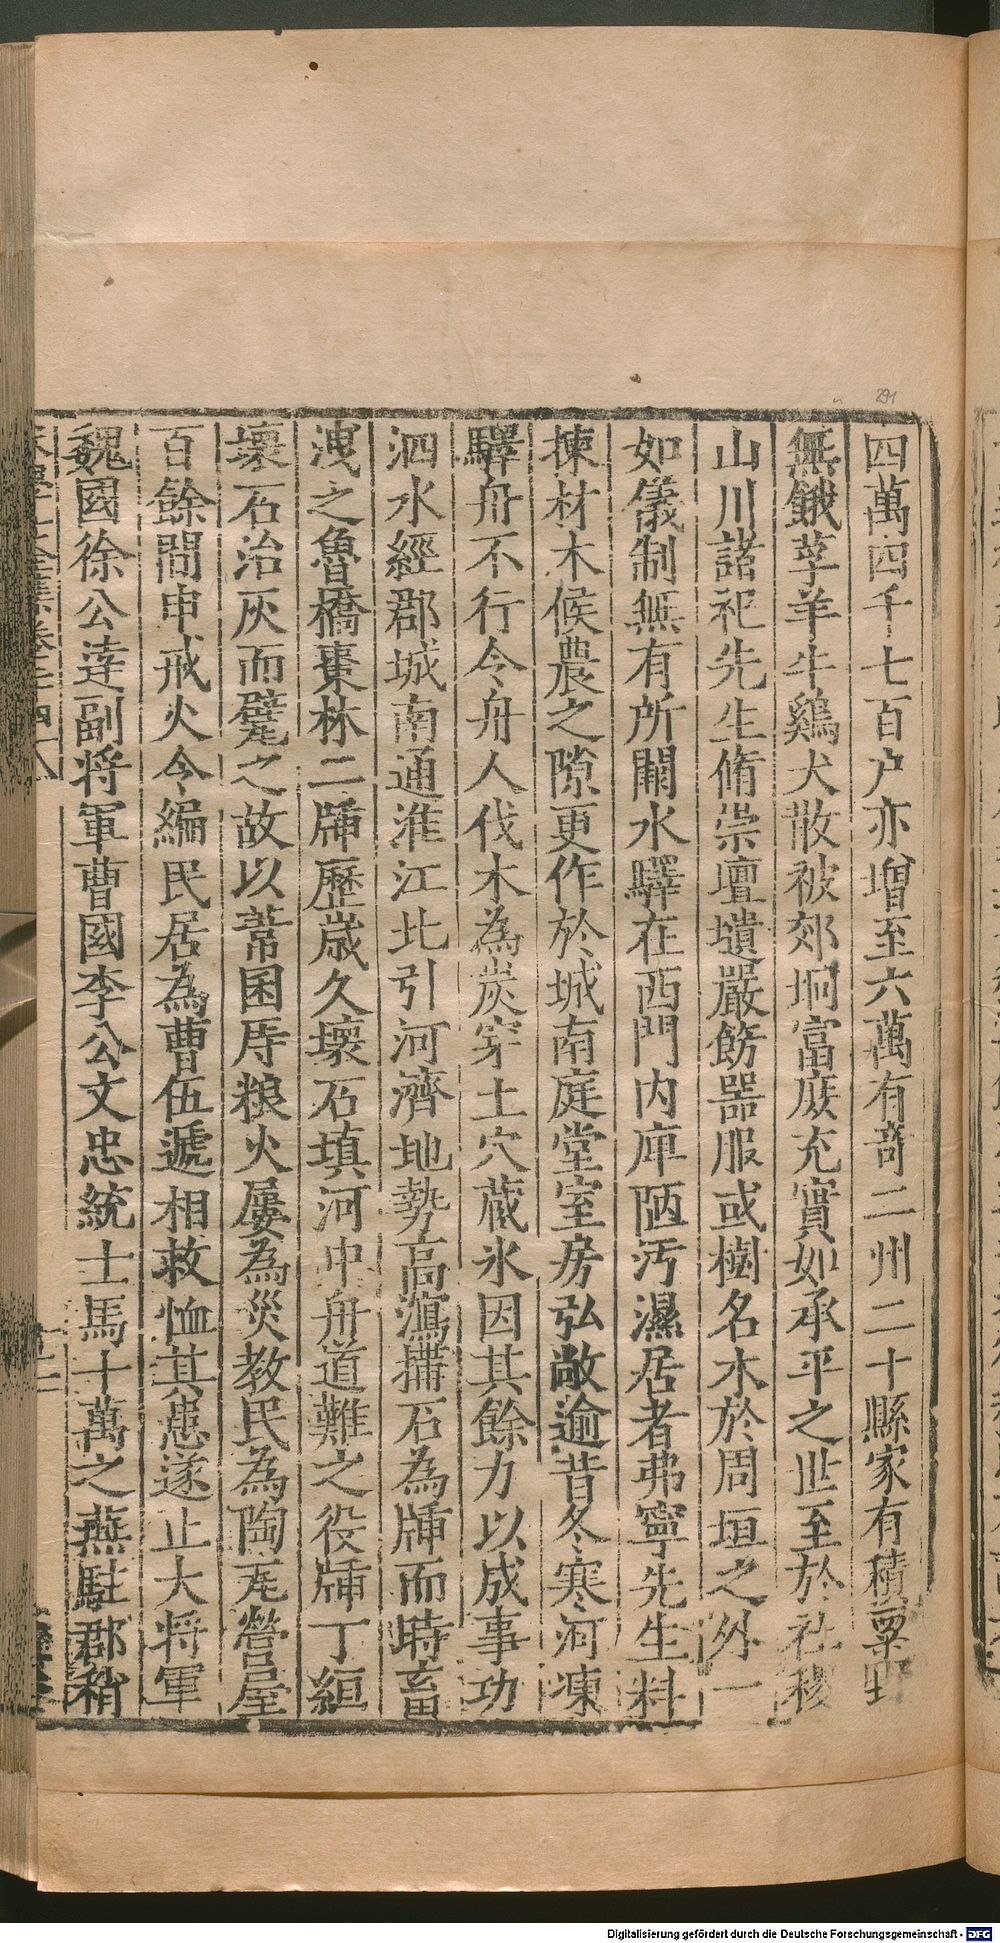 四萬四千七百户亦增至六萬有奇二州二十縣家有積粟野
無餓莩羊牛鷄犬散被郊坰富庶充實如承平之世至於社稷
山川諸祀先生脩崇壇壝嚴飭噐服或樹名木於周垣之外一
如儀制無有所闕水驛在西門内庳陋汚濕居者弗寧先生料
揀材木候農之隙更作於城南庭堂室房弘敞逾昔冬寒河凍
驛舟不行令舟人伐木為炭穿土穴蔵氷因其餘力以成事功
泗水經郡城南通淮江北引河濟地勢高瀉攡石為牐而時畜
洩之魯橋棗林二牐歷歳久壞石填河中舟道難之役牐丁絙
壞石治灰而甃之故以葦囷庤粮火屢為災教民為陶瓦營屋
百餘間申戒火令編民居為曹伍遞相救恤其患遂止大將軍
魏國徐公逹副将軍曹國李公文忠統士馬十萬之燕駐郡稍
291
Digitalisierung gefördert durch die Deutsche Forschungsgemeinschaft - DFG